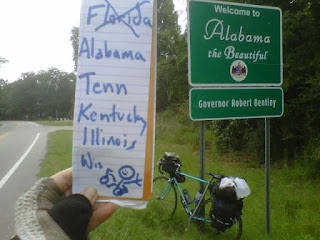 Florida
Alabama
Tenn
Kentucky
Illinois
Wis
Welcome to
Alabama
the Beautiful
Governor Robert Bentley